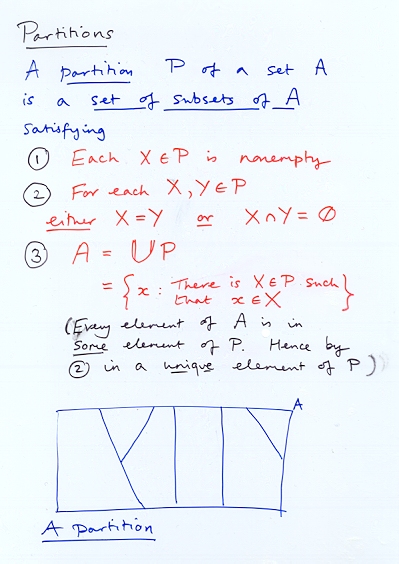 Partitions
A partition P of a set A
is a set of subsets of A
satisfying
① Each X ∈ P is nonempty
② For each X, Y ∈ P
either X = Y or X ∩ Y = Ø
③ A = ⋃P
= { x : There is X ∈ P such
that x ∈ X }
(Every element of A is in
some element of P. Hence by
② in a unique element of P)
A
A partition